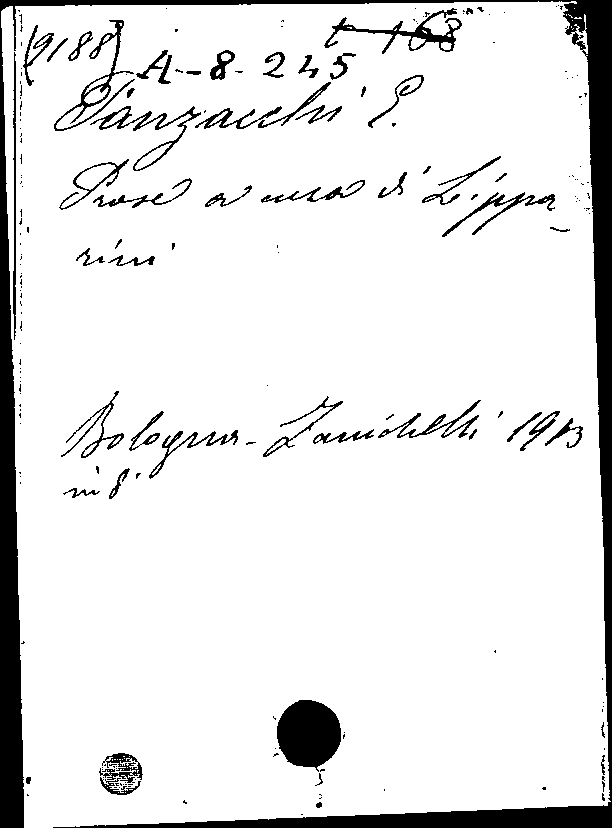 (9188) A-8-245 t 168
Panzacchi E.
Prose a cura di Lippa-
rini
Bologna - Zanichelli 1913
in 8°